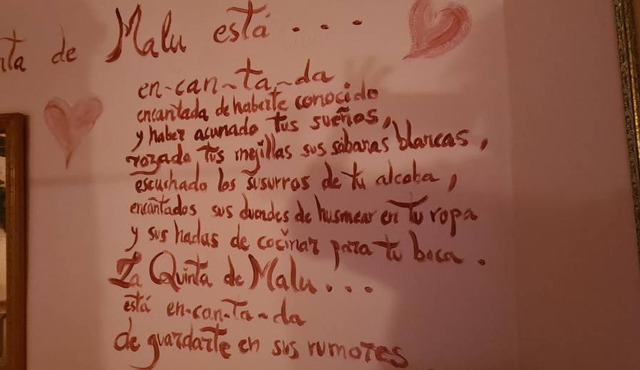 nta de Malu está . . . .
en-can-ta-da.
encantada de haberte conocido
y haber acunado tus sueños,
rozado tus mejillas sus sábanas blancas,
escuchado los susurros de tu alcoba,
encantados sus duendes de husmear en tu ropa
y sus hadas de cocinar para tu boca.
La Quinta de Malu...
está en-can-ta-da
de guardarte en sus rumores